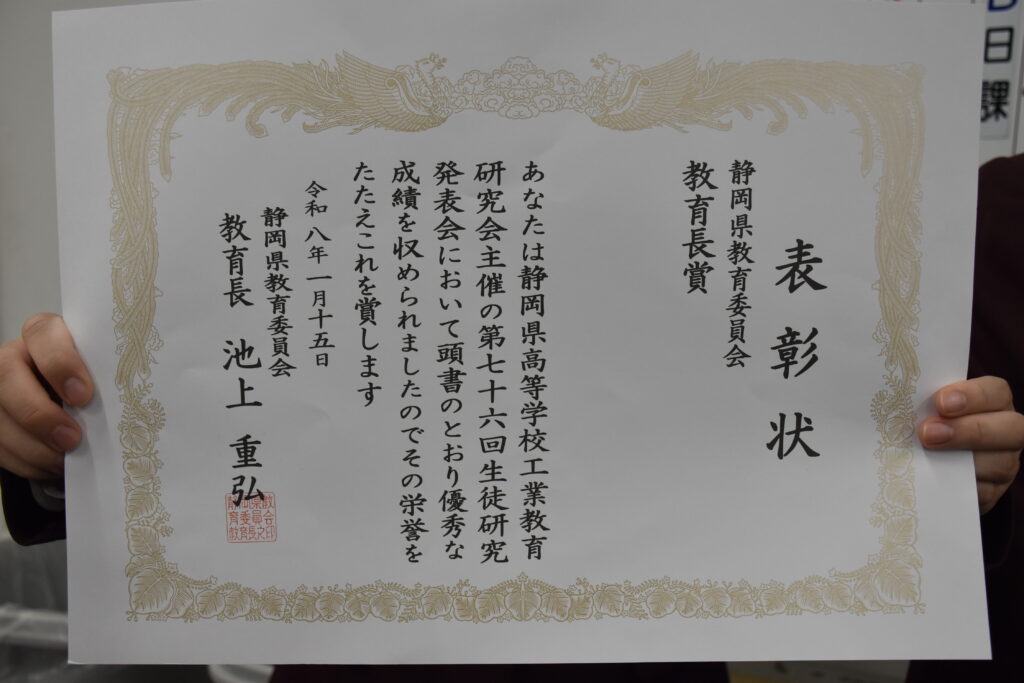 表彰状
静岡県教育委員会
教育長賞
あなたは静岡県高等学校工業教育
研究会主催の第七十六回生徒研究
発表会において頭書のとおり優秀な
成績を収められましたのでその栄誉を
たたえこれを賞します
令和八年一月十五日
静岡県教育委員会
教育長 池上重弘
日課